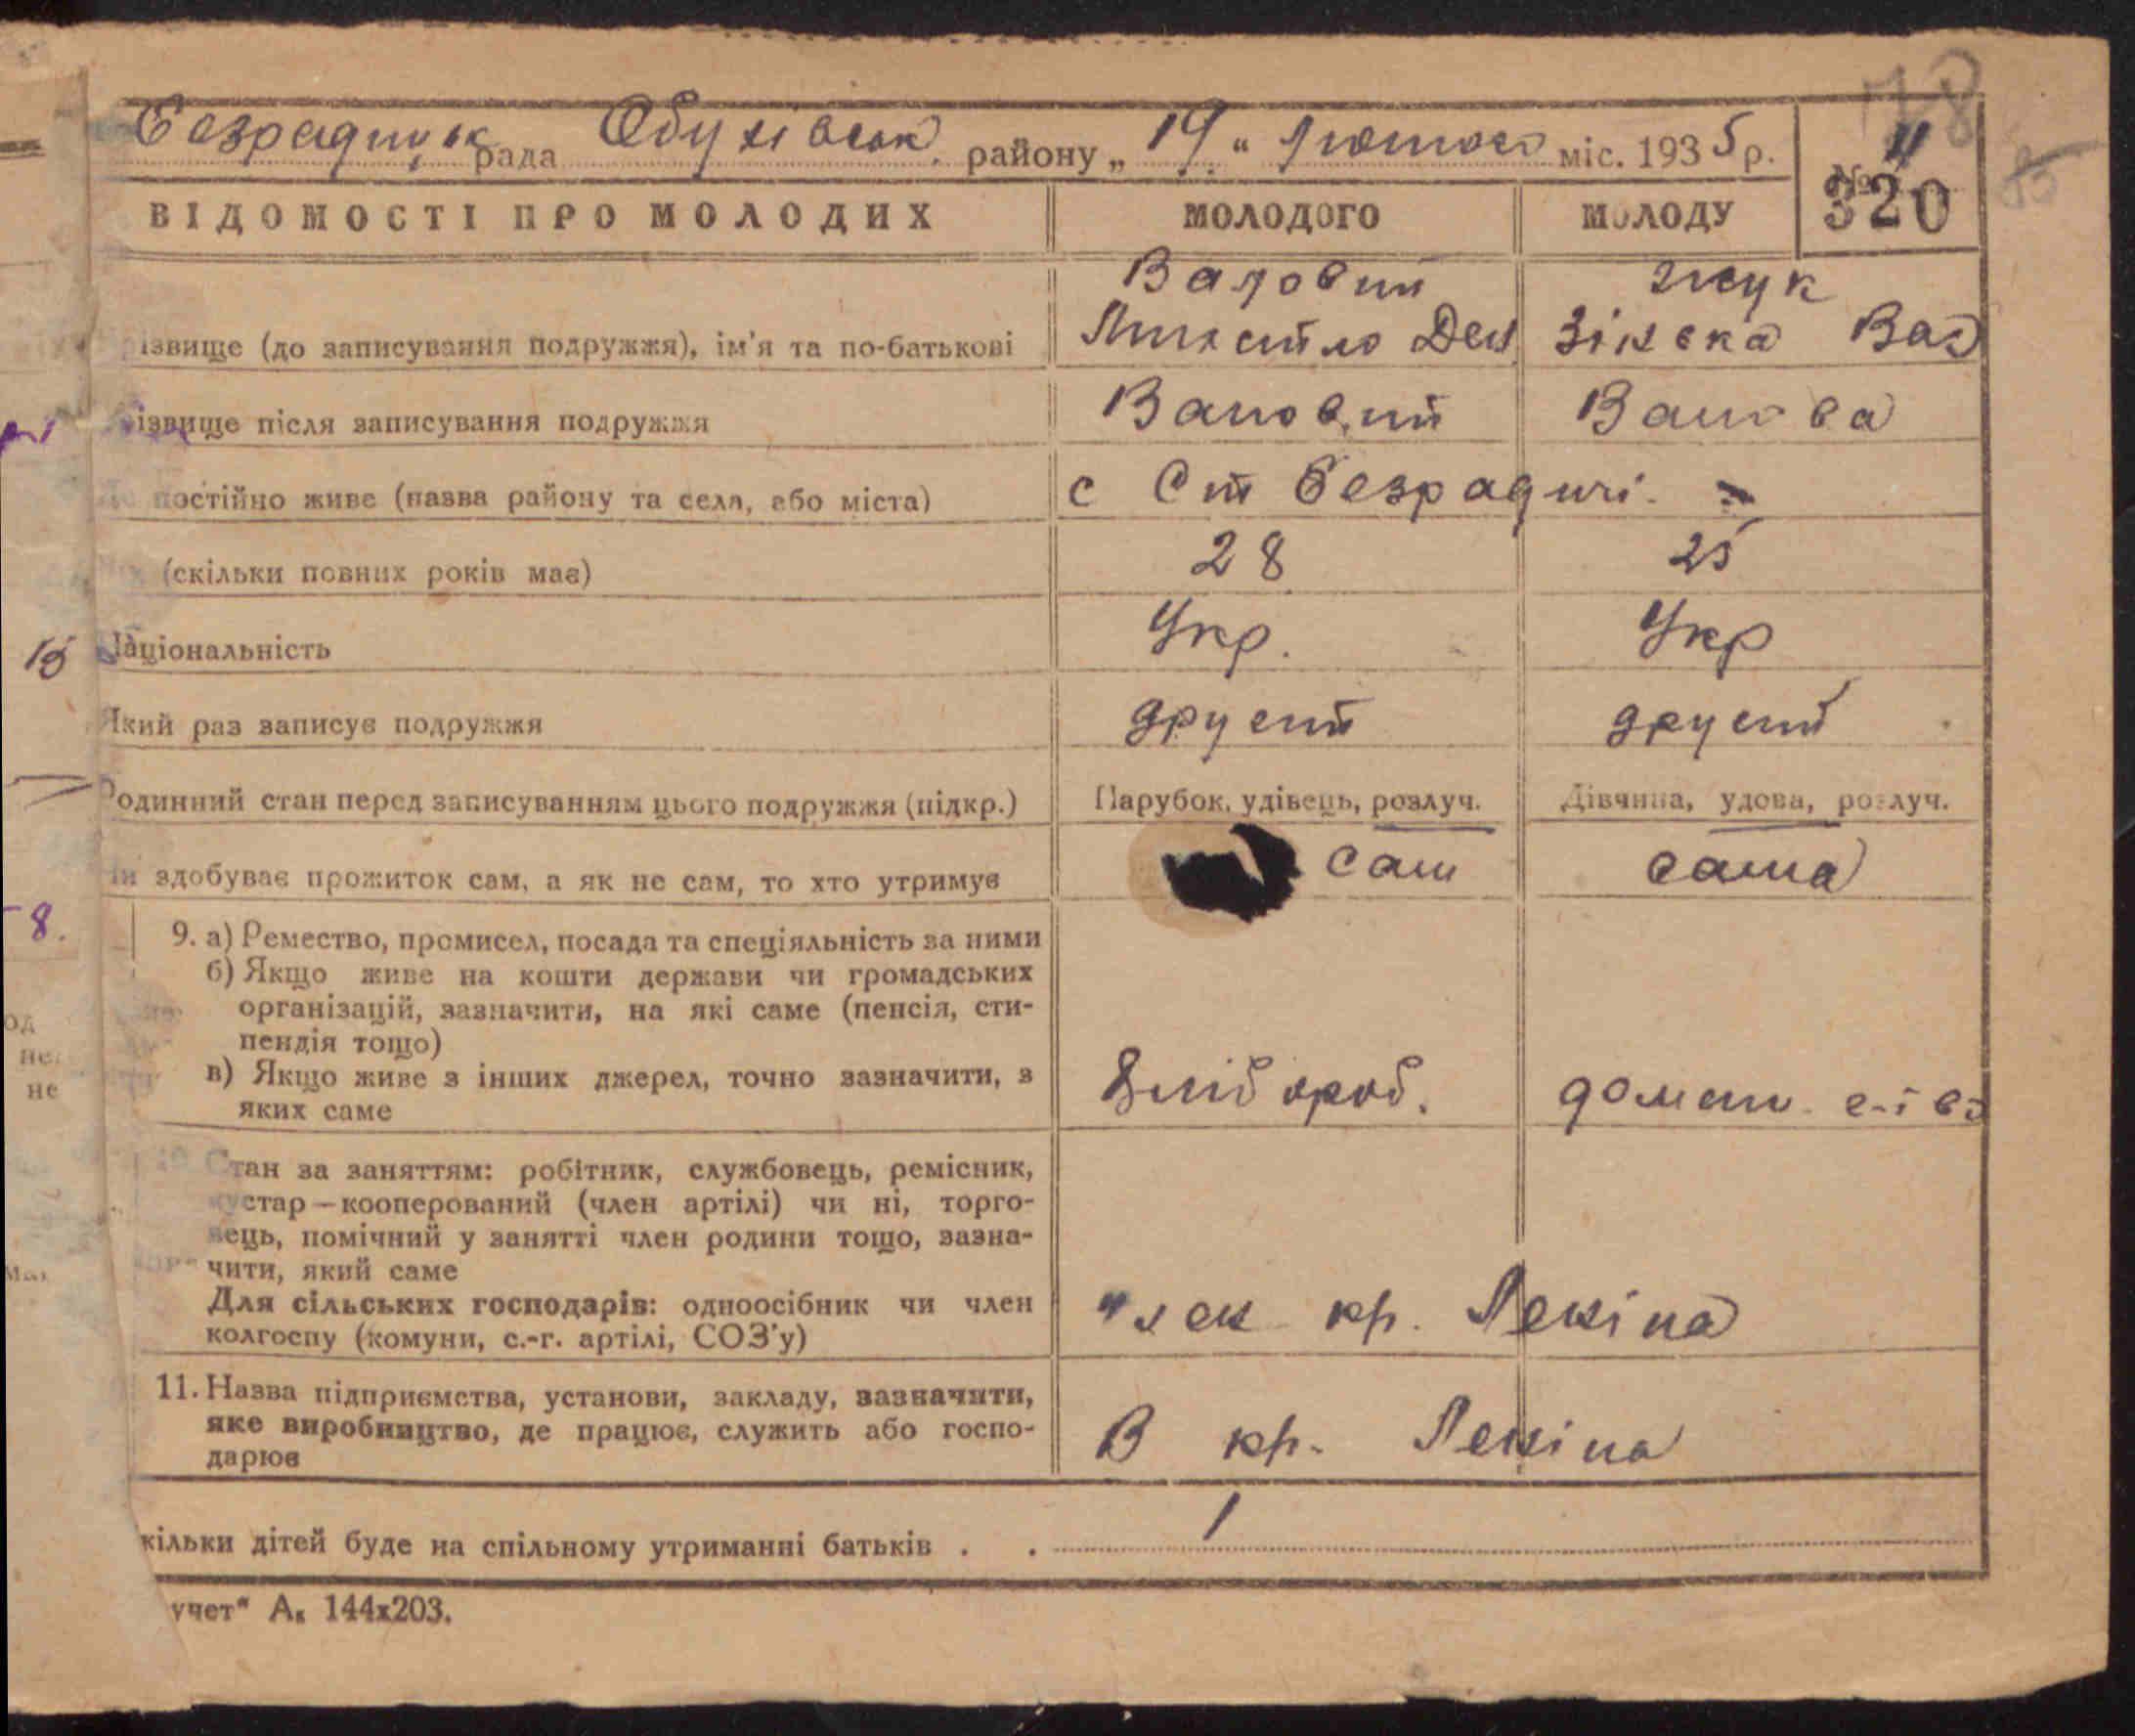 78
Безрадицьк рада Обухівськ. району „ 19 " лютого міс. 1935 р.
№ 11
320
ВІДОМОСТІ ПРО МОЛОДИХ МОЛОДОГО МОЛОДУ
Валовий Жук
ізвище (до записування подружжя), ім'я та по-батькові Дем Зінька Вас
ізвище після записування подружжя Валовий Валова
постійно живе (назва району та села, або міста) с Ст Безрадичі.
(скільки повних років має) 28 25
15 Національність Укр. Укр
Який раз записує подружжя другий другий
Родинний стан перед записуванням цього подружжя (підкр.) Парубок, удівець, розлуч. Дівчина, удова, розлуч.
здобуває прожиток сам, а як не сам, то хто утримує сам сама
8.
9. а) Ремество, промисел, посада та спеціяльність за ними
б) Якщо живе на кошти держави чи громадських
організацій, зазначити, на які саме (пенсія, сти-
пендія тощо)
в) Якщо живе з інших джерел, точно зазначити, з
яких саме Хлібороб. домаш.
од
не
не
Стан за заняттям: робітник, службовець, ремісник,
кустар—кооперований (член артілі) чи ні, торго-
вець, помічний у занятті член родини тощо, зазна-
чити, який саме
Для сільських господарів: одноосібник чи член
колгоспу (комуни, с.-г. артілі, СОЗ'у) член кр. Леніна
11. Назва підприємства, установи, закладу, зазначити,
яке виробництво, де працює, служить або госпо-
дарює В кр. Леніна
кільки дітей буде на спільному утриманні батьків . . 1
учет" А₆ 144х203.